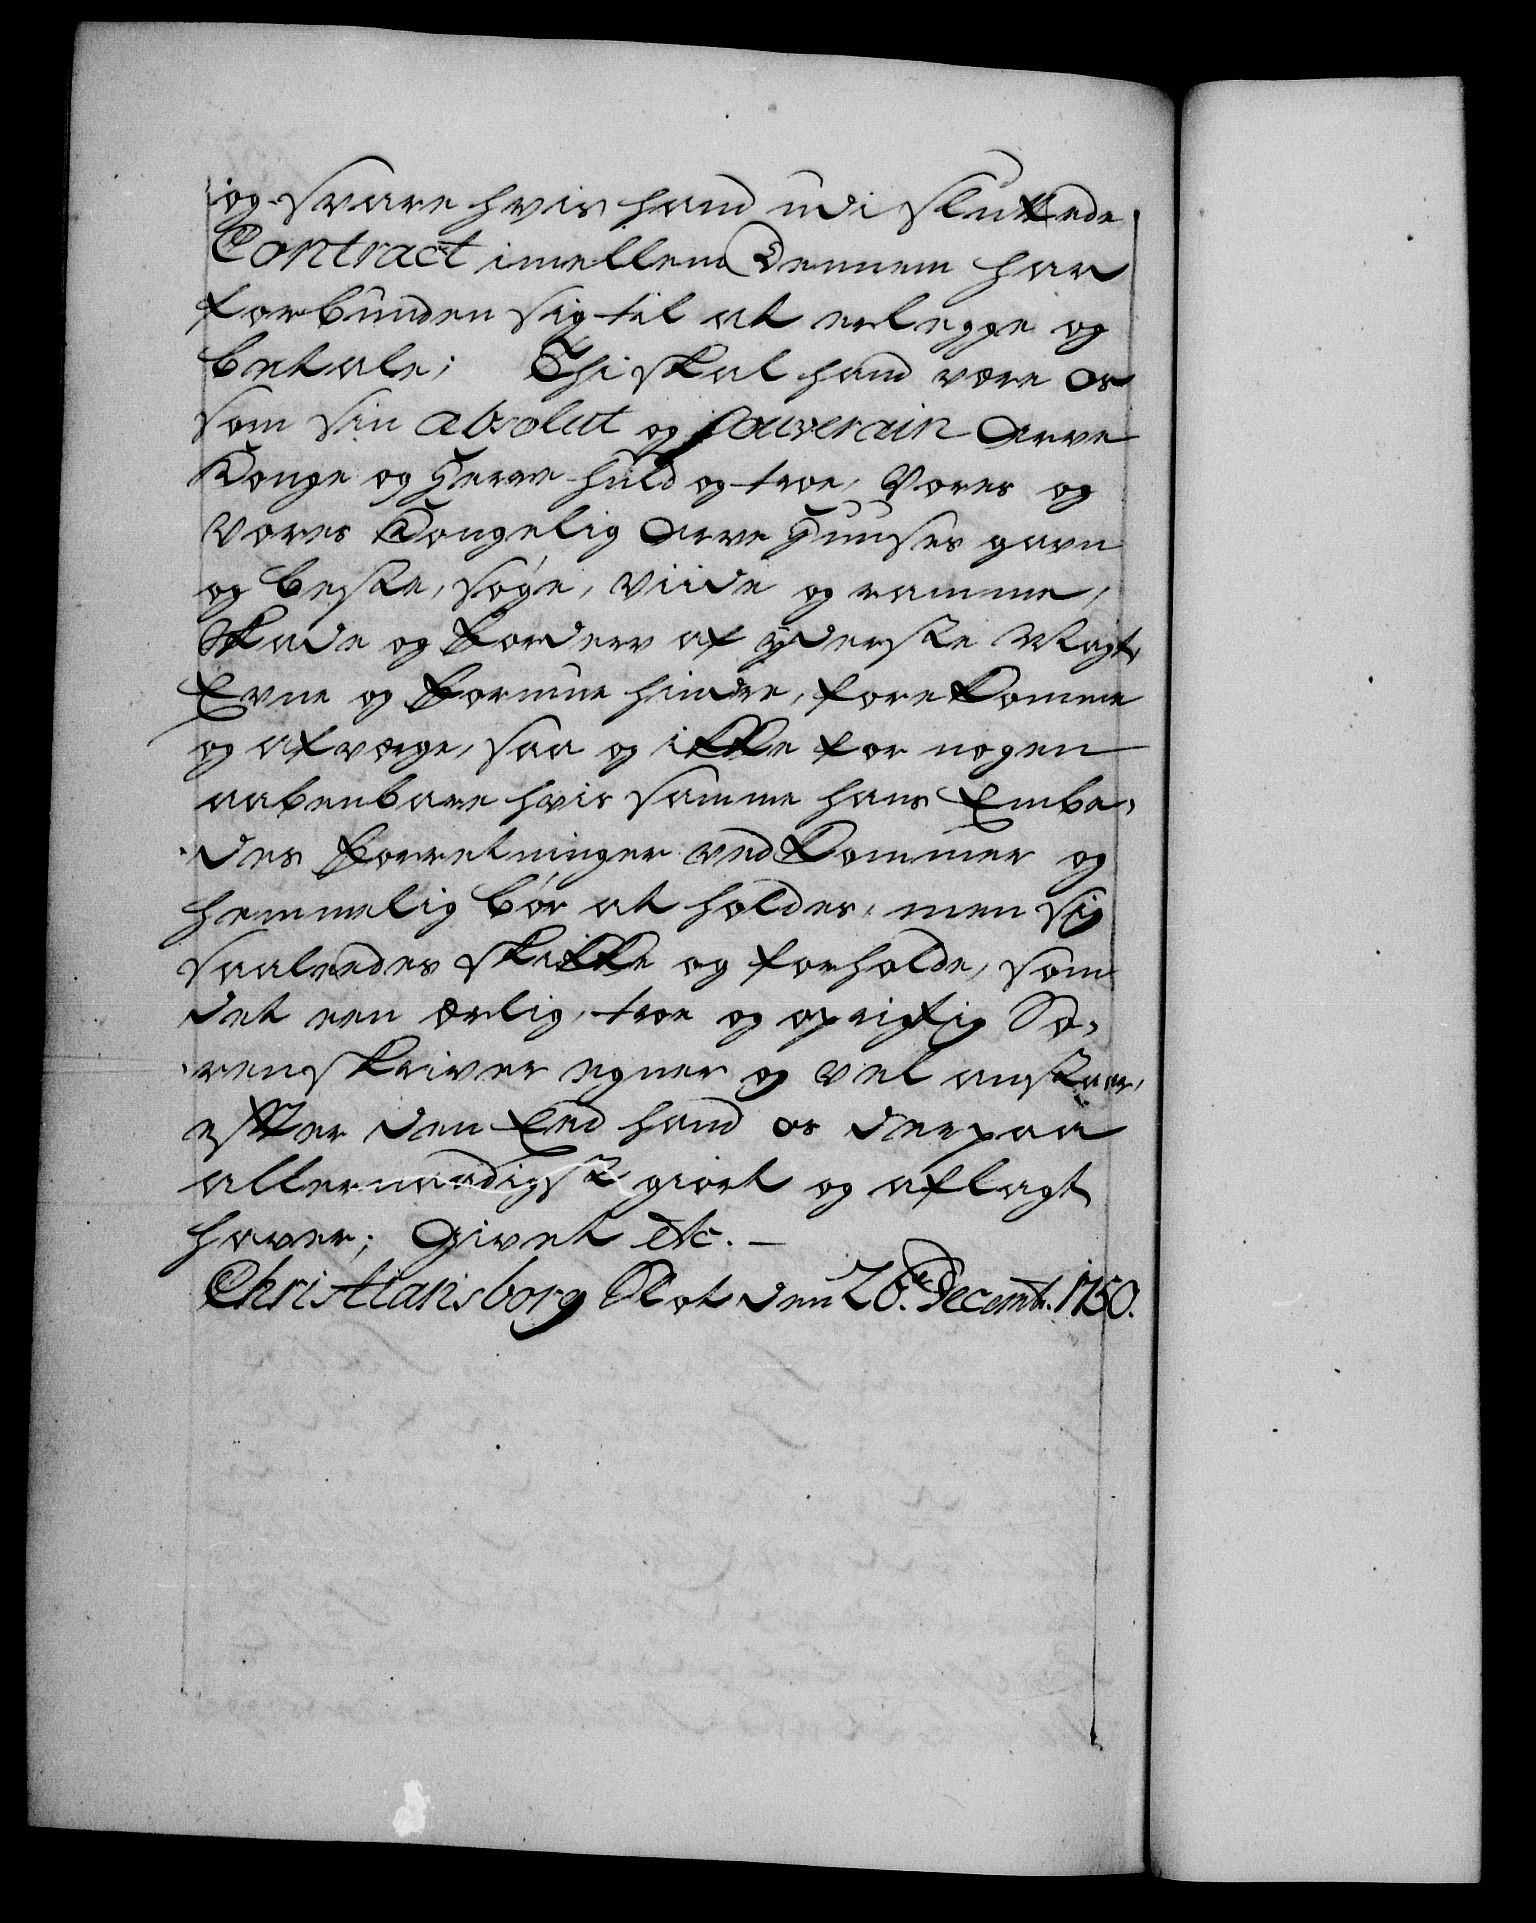 og svare hvis hand udi sluttede
Contract imellem Dennem har
forbunden sig til at erlegge og
betale; Thi skal hand være os
som sin absolut og souverain Arve
Konge og Herre huld og troe, Vores og
Vores Kongelig Arve Huuses gavn
og beste, søge, viide og ramme,
Skade og Forderv af yderste Magt,
Evne og Formue hindre, forekomme
og afværge, saa og ikke for nogen
aabenbare hvis samme hans Embe,
des Forretninger vedkommer og
hemmelig bør at holdes, men sig
saaledes skikke og forholde, som
det een ærlig, troe og oprigtig So,
renskriver egner og vel anstaar,
efter den Eed hand os derpaa
allernaadigst giort og aflagt
haver; Givet etc. —
Christiansborg Slot den 28. Decembr. 1750.